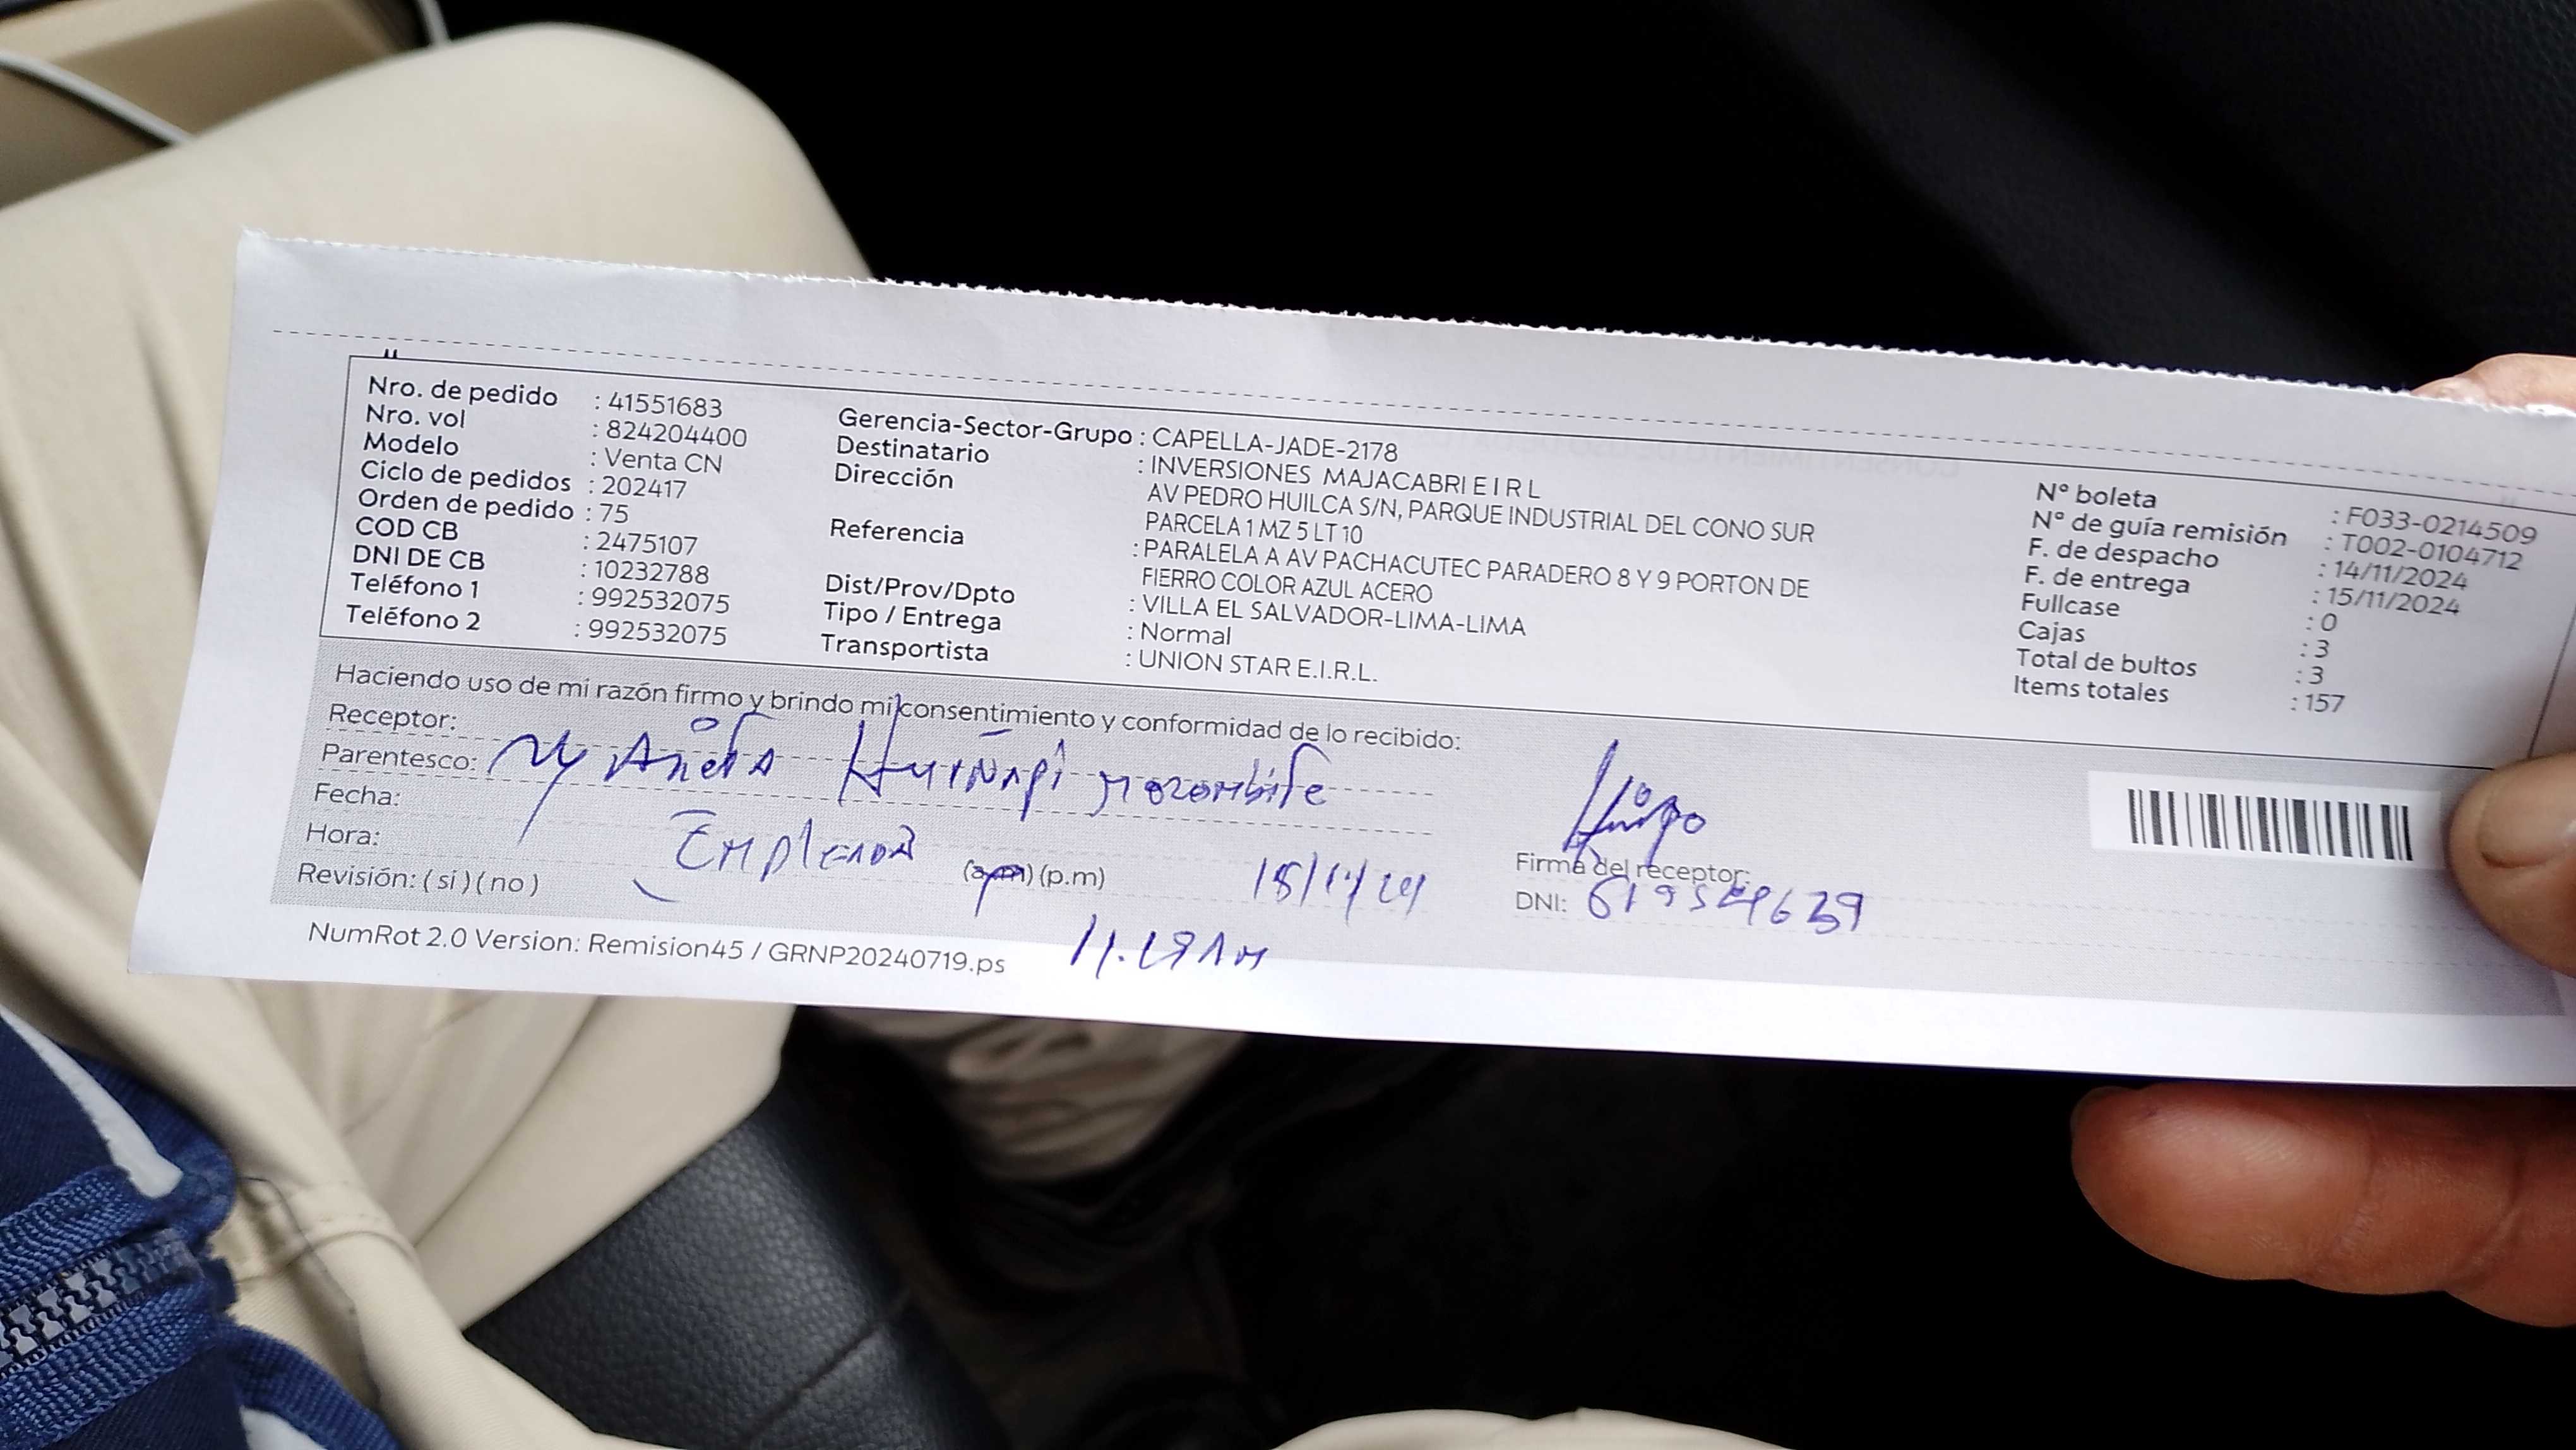 Nro. de pedido : 41551683
Nro. vol : 824204400
Modelo : Venta CN
Ciclo de pedidos : 202417
Orden de pedido : 75
COD CB : 2475107
DNI DE CB : 10232788
Teléfono 1 : 992532075
Teléfono 2 : 992532075
Gerencia-Sector-Grupo : CAPELLA-JADE-2178
Destinatario : INVERSIONES MAJACABRI E I R L
Dirección AV PEDRO HUILCA S/N, PARQUE INDUSTRIAL DEL CONO SUR
PARCELA 1 MZ 5 LT 10
Referencia : PARALELA A AV PACHACUTEC PARADERO 8 Y 9 PORTON DE
FIERRO COLOR AZUL ACERO
Dist/Prov/Dpto : VILLA EL SALVADOR-LIMA-LIMA
Tipo / Entrega : Normal
Transportista : UNION STAR E.I.R.L.
N° boleta : F033-0214509
N° de guía remisión : T002-0104712
F. de despacho : 14/11/2024
F. de entrega : 15/11/2024
Fullcase : 0
Cajas : 3
Total de bultos : 3
Items totales : 157
Haciendo uso de mi razón firmo y brindo mi consentimiento y conformidad de lo recibido:
Receptor:
Parentesco:
Fecha:
Hora: (a.m) (p.m)
Revisión: ( si ) ( no )
Firma del receptor:
DNI:
NumRot 2.0 Version: Remision45 / GRNP20240719.ps